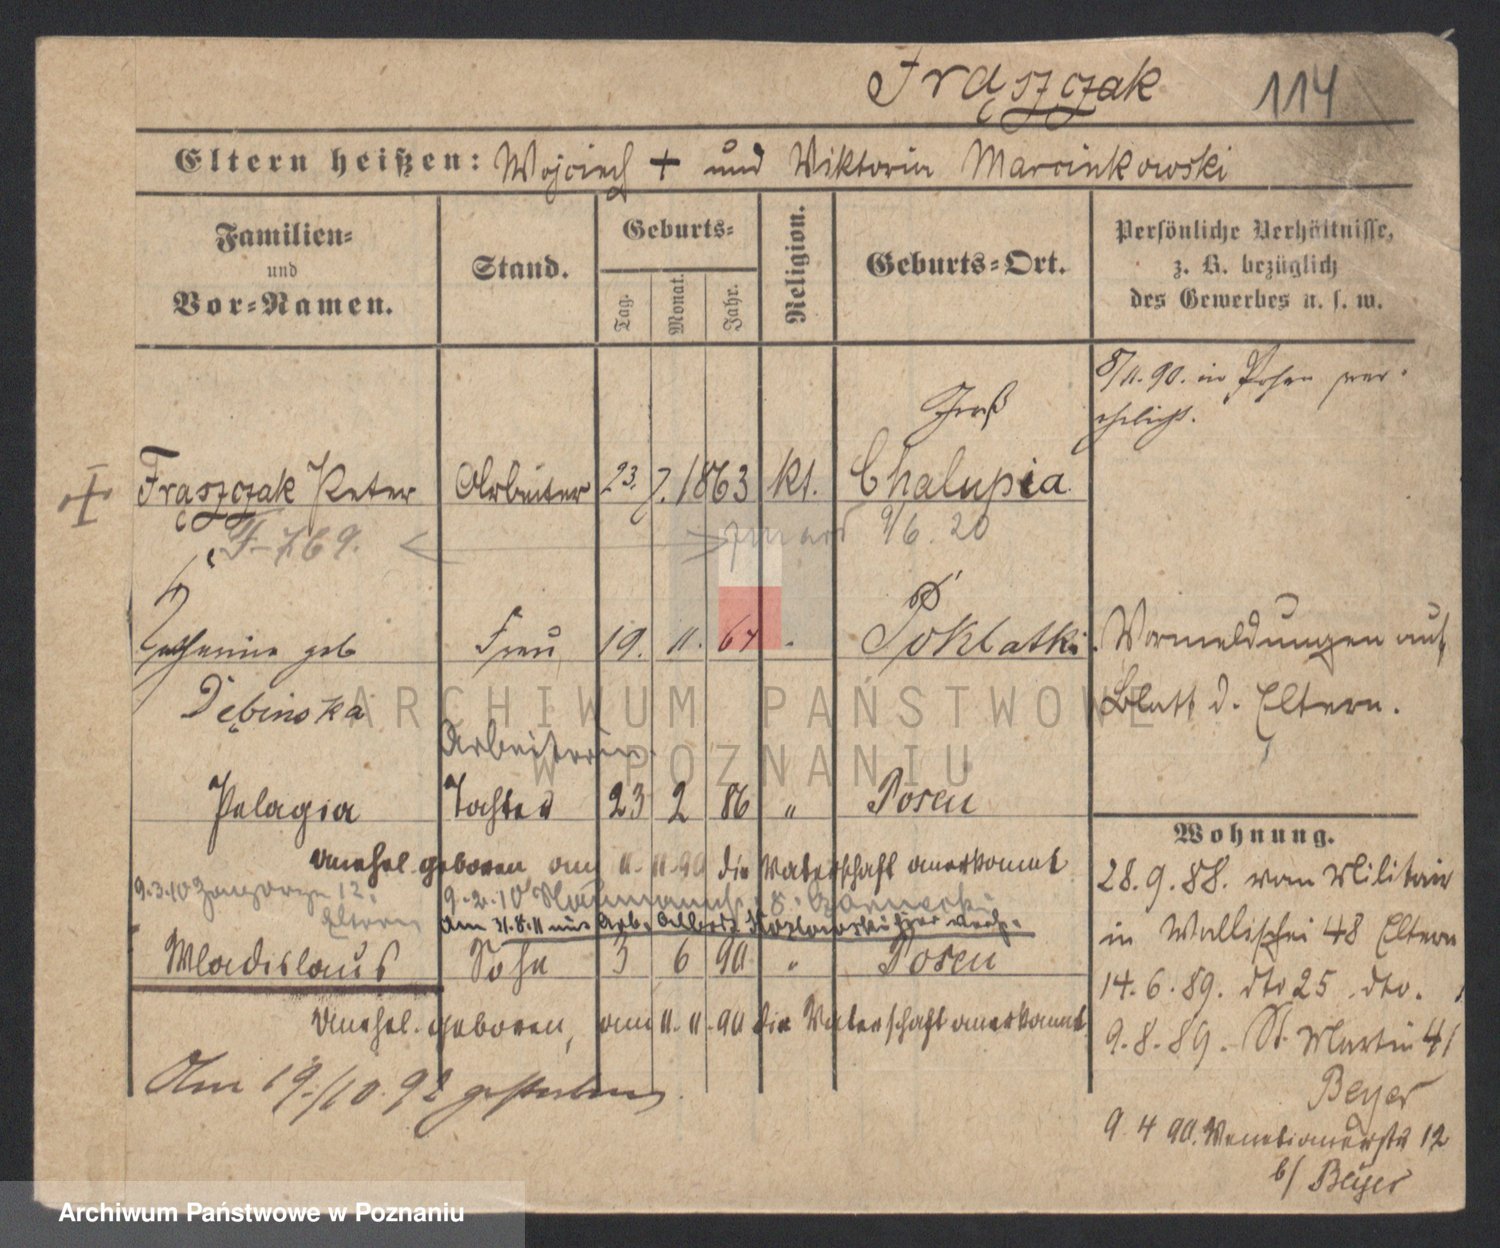 Fraszczak 114
Eltern heißen: Wojciech + und Viktoria Marcinkowski
Familien-
und
Vor-Namen.
Stand.
Geburts-
Tag.
Monat.
Jahr.
Religion.
Geburts-Ort.
Persönliche Verhältnisse,
z. B. bezüglich
des Gewerbes u. s. w.
8/11.90. in Posen ver-
ehelicht.
Fraszczak Peter Arbeiter 23. 7. 1863 kt. Chalupia
F-769. 9/6. 20
geb Frau 19. 11. 67 "
Poklatki
Dębinska
Vormeldungen auf
Blatt d. Eltern.
Arbeiterin.
Pelagia Tochter 23 2 86 " Posen
unehel. geboren am 11.11.90 die Vaterschaft anerkannt
9.3.10 12.
Eltern
9.2.10
Am 31.8.11 mit Arb. Albert Kozlowski hier vereh.
Wladislaus Sohn 3 6 90 " Posen
Unehel. geboren, am 11.11.90 die Vaterschaft anerkannt
Am 19./10.92 gestorben.
Wohnung.
28.9.88. vom Militair
in Wallischei 48 Eltern
14.6.89. dto 25 dto.
9.8.89. St. Martin 41
Beyer
9.4 90. Venetianerstr 12
b/ Beyer
ARCHIWUM PAŃSTWOWE
W POZNANIU
Archiwum Państwowe w Poznaniu